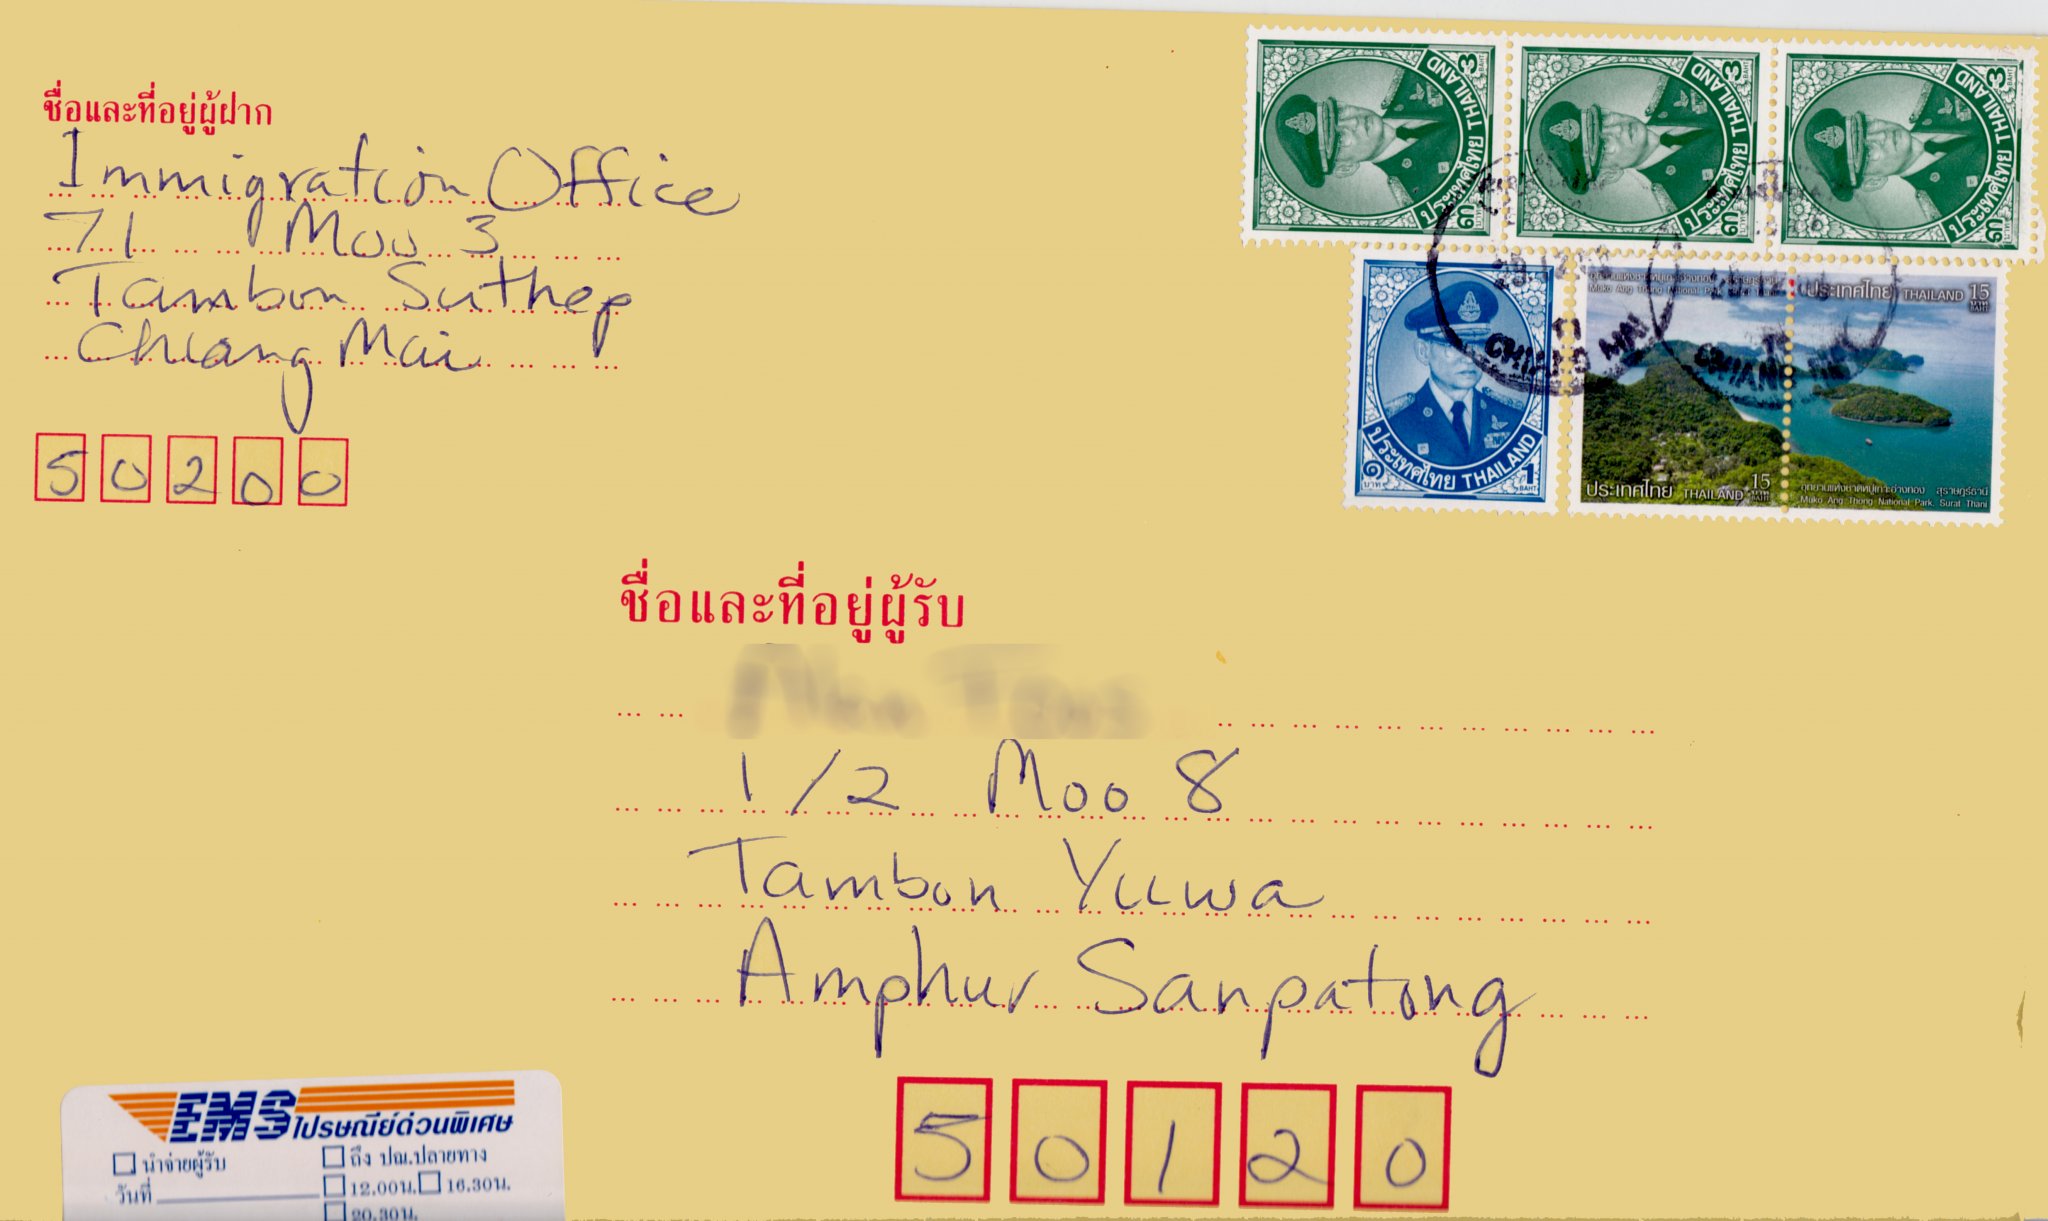 ชื่อและที่อยู่ผู้ฝาก
Immigration Office
71 Moo 3
Tambon Suthep
Chiang Mai
50200
ประเทศไทย THAILAND
๓ บาท 3 BAHT
ประเทศไทย THAILAND
๓ บาท 3 BAHT
ประเทศไทย THAILAND
๓ บาท 3 BAHT
ประเทศไทย THAILAND
๑ บาท 1 BAHT
CHIANG MAI
CHIANG MAI
ประเทศไทย THAILAND 15 บาท BAHT
ประเทศไทย THAILAND 15 บาท BAHT
อุทยานแห่งชาติหมู่เกาะอ่างทอง สุราษฎร์ธานี
Muko Ang Thong National Park, Surat Thani
ชื่อและที่อยู่ผู้รับ
1/2 Moo 8
Tambon Yuwa
Amphur Sanpatong
50120
EMS ไปรษณีย์ด่วนพิเศษ
นำจ่ายผู้รับ ถึง ปณ.ปลายทาง
วันที่ 12.00น. 16.30น.
20.30น.